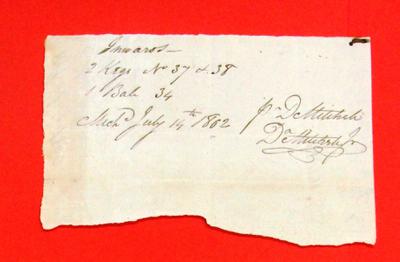 Inwards —
2 Kegs No 37 & 38
1 Bale 34
Michd July 14th 1802
pr D Mitchell